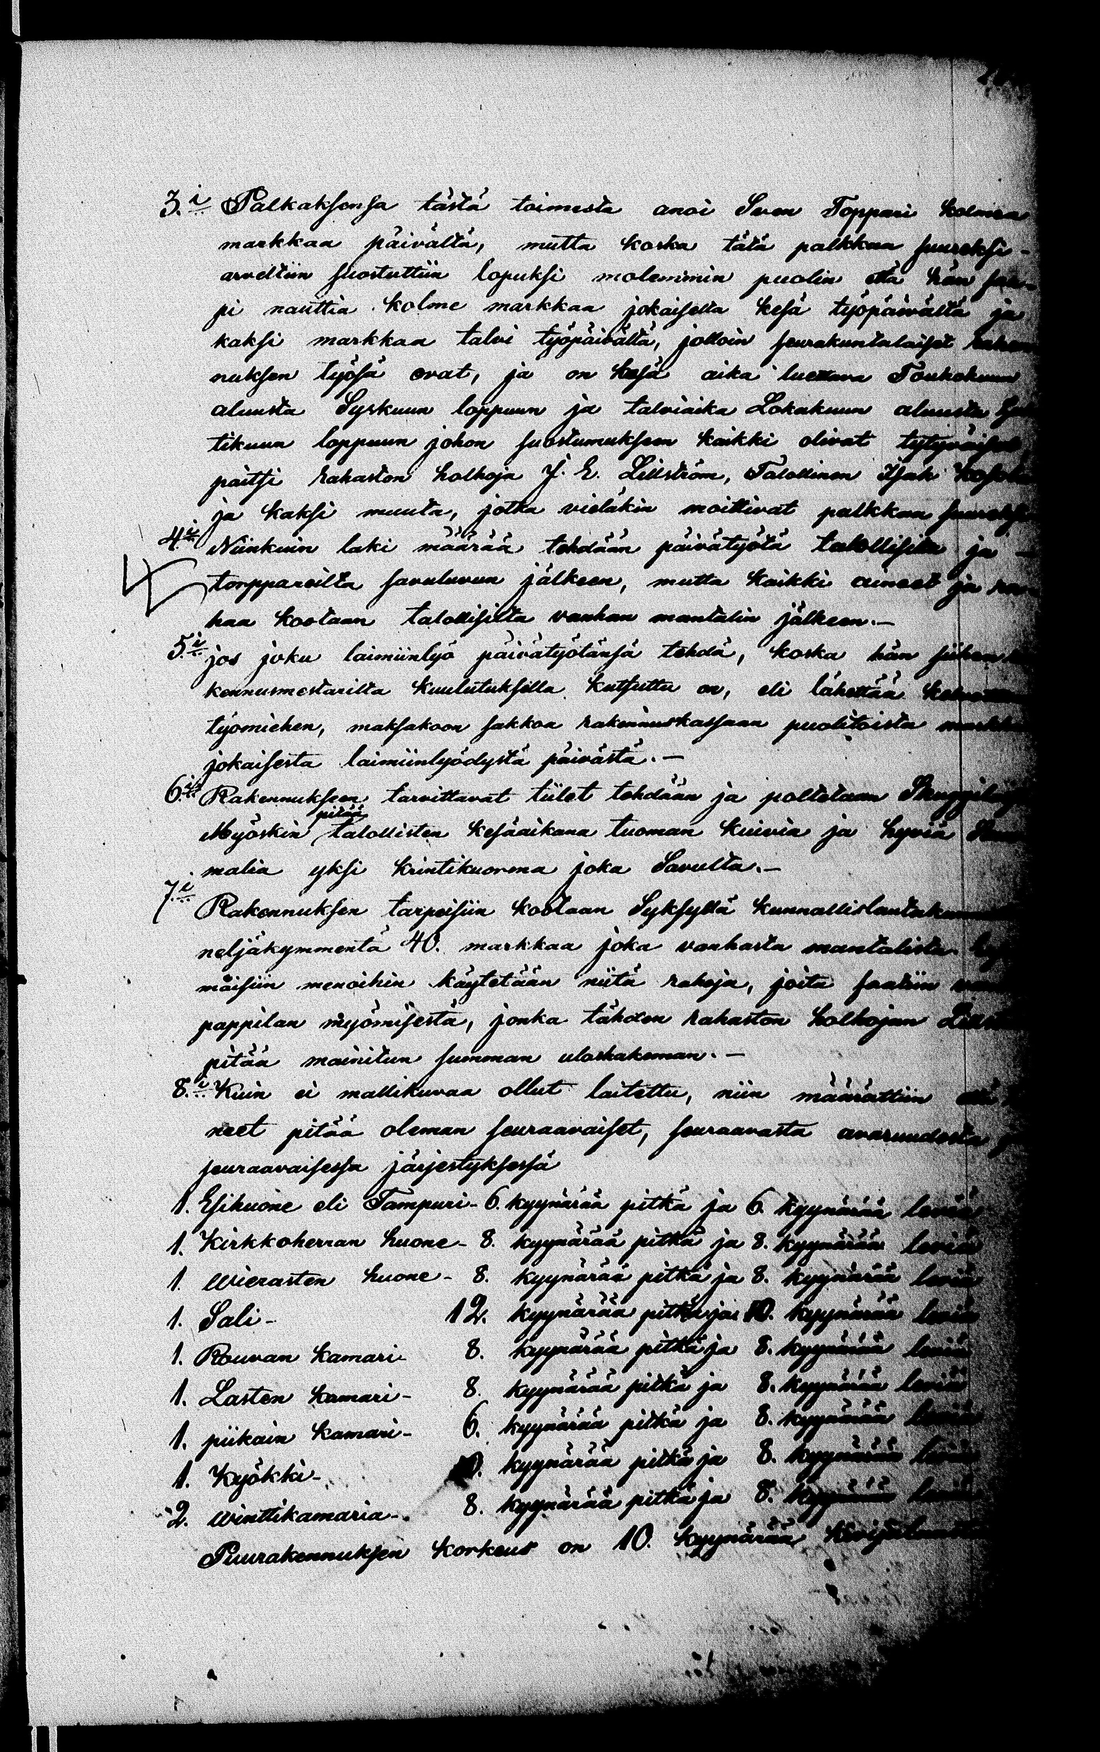 3.i Palkaksensa tästä toimesta anoi Sven Toppari kolmea
markkaa päivältä, mutta koska tätä palkkaa suureksi-
arveltiin suostuttiin lopuksi molemmin puolin että hän saa-
pi nauttia kolme markkaa jokaiselta kesä työpäivältä ja
kaksi markkaa talvi työpäivältä, jolloin seurakuntalaiset raken
nuksen työsä ovat, ja on kesä aika luettava Toukokuun
alusta Syskuun loppuun ja talviaika Lokakuun alusta Huh
tikuun loppuun johon suostumukseen kaikki olivat tytyväiset
paitsi rahaston holhoja J. E. Lillström, Talollinen Isak
ja kaksi muuta, jotka vieläkin moittivat palkkaa suureksi
4.i Niinkuin laki määrää tehdään päivätyötä talollisilta ja -
torppareilta savuluvun jälkeen, mutta kaikki aineet ja ra-
haa kootaan talollisilta vanhan mantalin jälkeen.-
5.i jos joku laimiinlyö päivätyötänsä tehdä, koska hän siihen
kennusmestarilta kuulutuksella kutsuttu on, eli lähettää
työmiehen, maksakoon sakkoa rakennuskassaan puolitoista markkaa
jokaisesta laimiinlyödystä päivästä.-
6.i Rakennukseen tarvittavat tiilet tehdään ja poltetaan
Myöskin pitää talollisten kesäaikana tuoman kuivia ja hyviä
malia yksi krintikuorma joka Savulta.-
7.i Rakennuksen tarpeisiin kootaan Syksyllä
neljäkymmentä 40. markkaa joka vanhasta mantalista
mäisiin menoihin käytetään niitä rahoja, joita saatiin
pappilan myömisestä, jonka tähden rahaston holhojan
pitää mainitun summan uloshakeman.-
8.i Kuin ei mallikuvaa ollut laitettu, niin määrättiin että
neet pitää oleman seuraavaiset, seuraavasta avaruudesta ja
seuraavaisessa järjestyksessä
1. Esihuone eli Tampuri- 6. kyynärää pitkä ja 6. kyynärää leviä
1. Kirkkoherran huone- 8. kyynärää pitkä ja 8. kyynärää leviä
1. wierasten huone- 8. kyynärää pitkä ja 8. kyynärää leviä
1. Sali- 12. kyynärää pitkä ja 10. kyynärää leviä
1. Rouvan kamari- 8. kyynärää pitkä ja 8. kyynärää leviä
1. Lasten kamari- 8. kyynärää pitkä ja 8. kyynärää leviä
1. piikain kamari- 6. kyynärää pitkä ja 8. kyynärää leviä
1. Kyökki- kyynärää pitkä ja 8. kyynärää leviä
2. winttikamaria- 8. kyynärää pitkä ja 8. kyynärää leviä
Puurakennuksen korkeus on 10. kyynärää